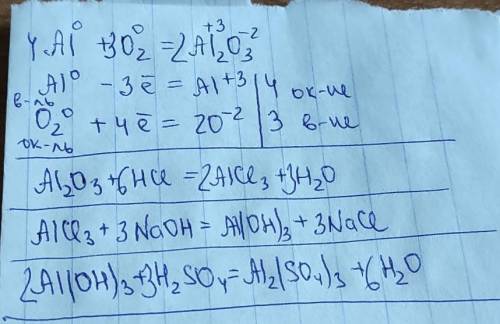 4Al⁰ + 3O₂⁰ = 2Al₂⁺³O₃⁻²
в-ль Al⁰ - 3ē = Al⁺³ | 4 ок-ие
ок-ль O₂⁰ + 4ē = 2O⁻² | 3 в-ие
Al₂O₃ + 6HCl = 2AlCl₃ + 3H₂O
AlCl₃ + 3NaOH = Al(OH)₃ + 3NaCl
2Al(OH)₃ + 3H₂SO₄ = Al₂(SO₄)₃ + 6H₂O